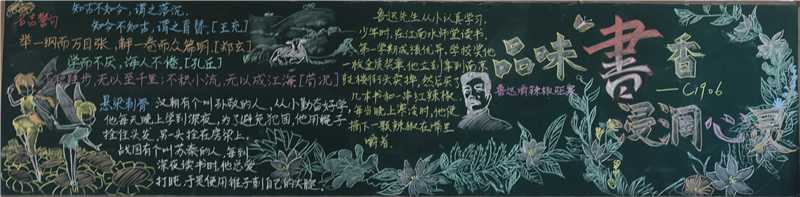 知古不知今，谓之落沉。
知今不知古，谓之盲瞽。[王充]
举一纲而万目张，解一卷而众篇明。[郑玄]
学而不厌，海人不倦。[孔丘]
不积跬步，无以至千里；不积小流，无以成江海[荀况]
悬梁刺骨
汉朝有个叫孙敬的人，从小勤奋好学，
他每天晚上学到深夜，为了避免犯困，他用绳子
拴住头发，另一头拴在房梁上。
战国有个叫苏秦的人，每到
深夜读书时，他总爱
打盹，于是便用锥子刺自己的大腿。
鲁迅先生从小认真学习，
少年时，在江南水师学堂读书，
第一学期成绩优异，学校奖他
一枚金质奖章，他立刻拿到南京
鼓楼街头卖掉，然后买了
几本书和一串红辣椒，
每当晚上寒冷时，他便
摘下一颗辣椒在嘴里
嚼着
鲁迅嚼辣椒驱寒
品味書香
—C1906
浸润心灵